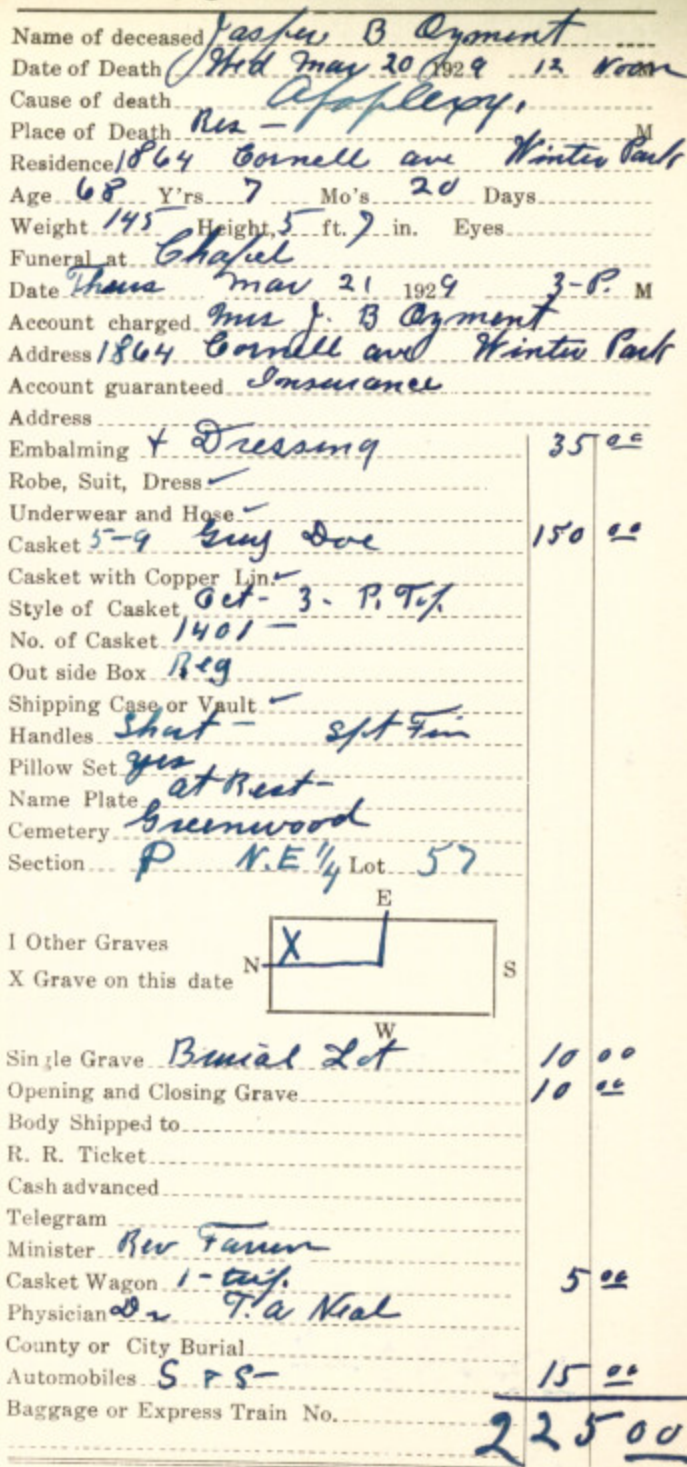 Name of deceased Jasper B Ozment
Date of Death Wed Mar 20 1929 12 Noon M
Cause of death Apoplexy.
Place of Death Res - M
Residence 1864 Cornell ave Winter Park
Age 68 Y'rs 7 Mo's 20 Days
Weight 145 Height, 5 ft. 7 in. Eyes
Funeral at Chapel
Date Thurs Mar 21 1929 3-P. M
Account charged Mrs J. B Ozment
Address 1864 Cornell ave Winter Park
Account guaranteed Insurance
Address
Embalming + Dressing 35 00
Robe, Suit, Dress ✓
Underwear and Hose ✓
Casket 5-9 Grey Doe 150 00
Casket with Copper Lin. ✓
Style of Casket Oct- 3- P. Top.
No. of Casket 1401 -
Out side Box Reg
Shipping Case or Vault ✓
Handles Short -
Pillow Set yes
Name Plate at Rest -
Cemetery Greenwood
Section P N.E 1/4 Lot 57
E
I Other Graves
X
N
S
X Grave on this date
W
Single Grave Burial Lot 10 00
Opening and Closing Grave 10 00
Body Shipped to
R. R. Ticket
Cash advanced
Telegram
Minister Rev
Casket Wagon 1- trip. 5 00
Physician Dr T. a Neal
County or City Burial
Automobiles S & S - 15 00
Baggage or Express Train No.
225 00